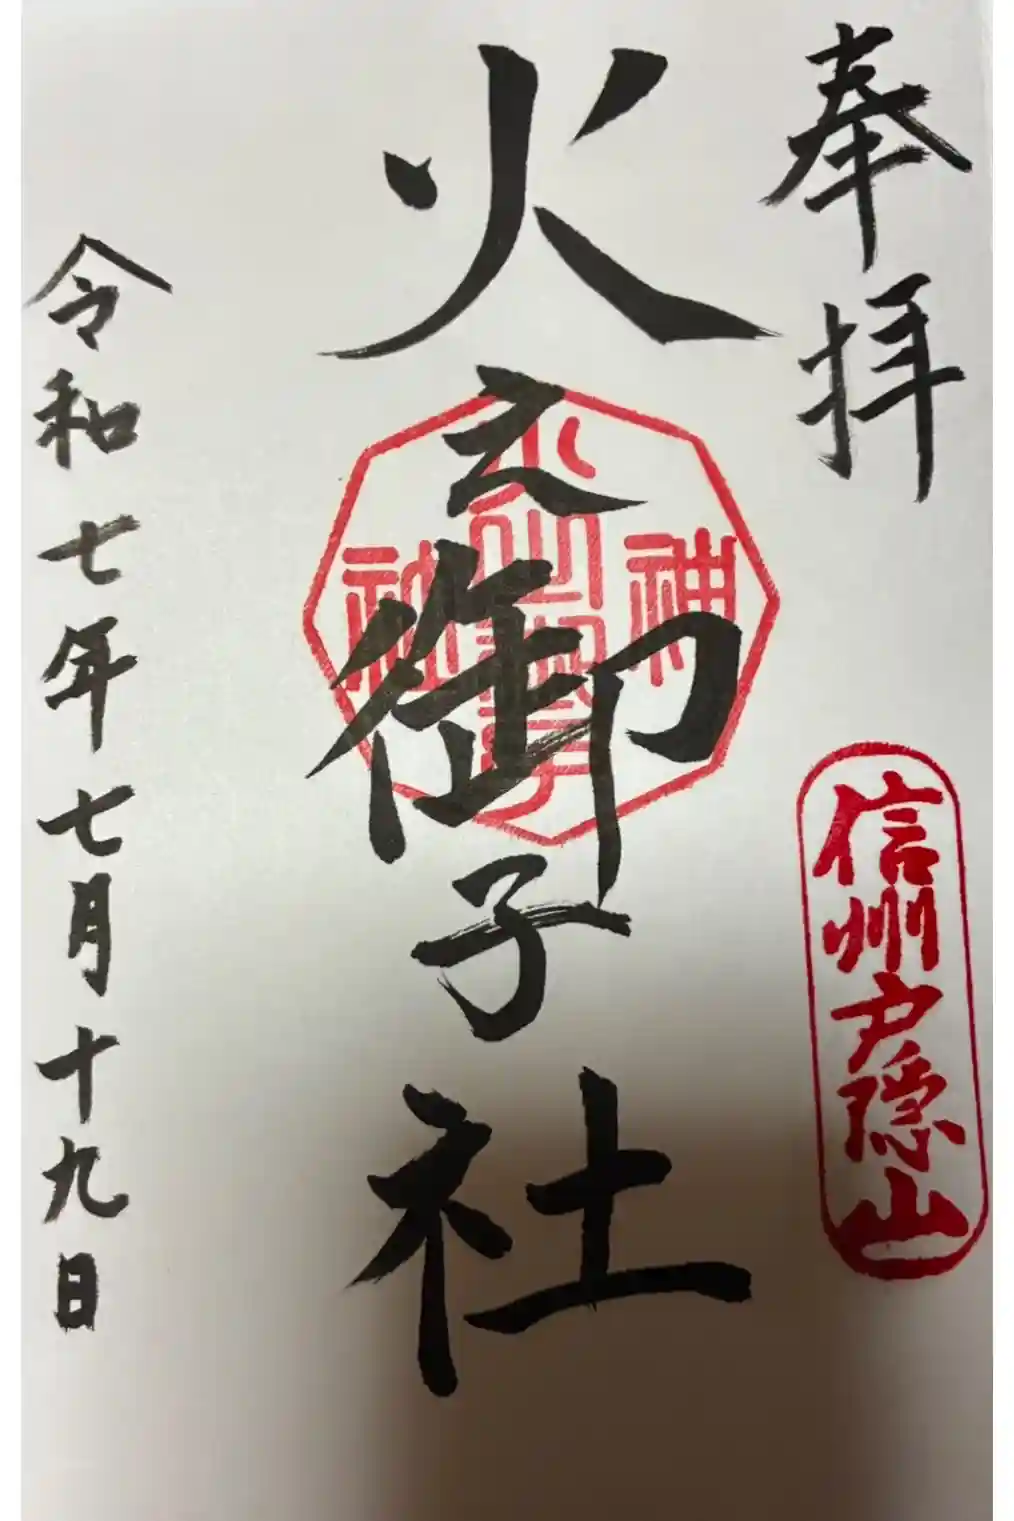 奉拝
信州戸隠山
火之御子社
神社
令和七年七月十九日